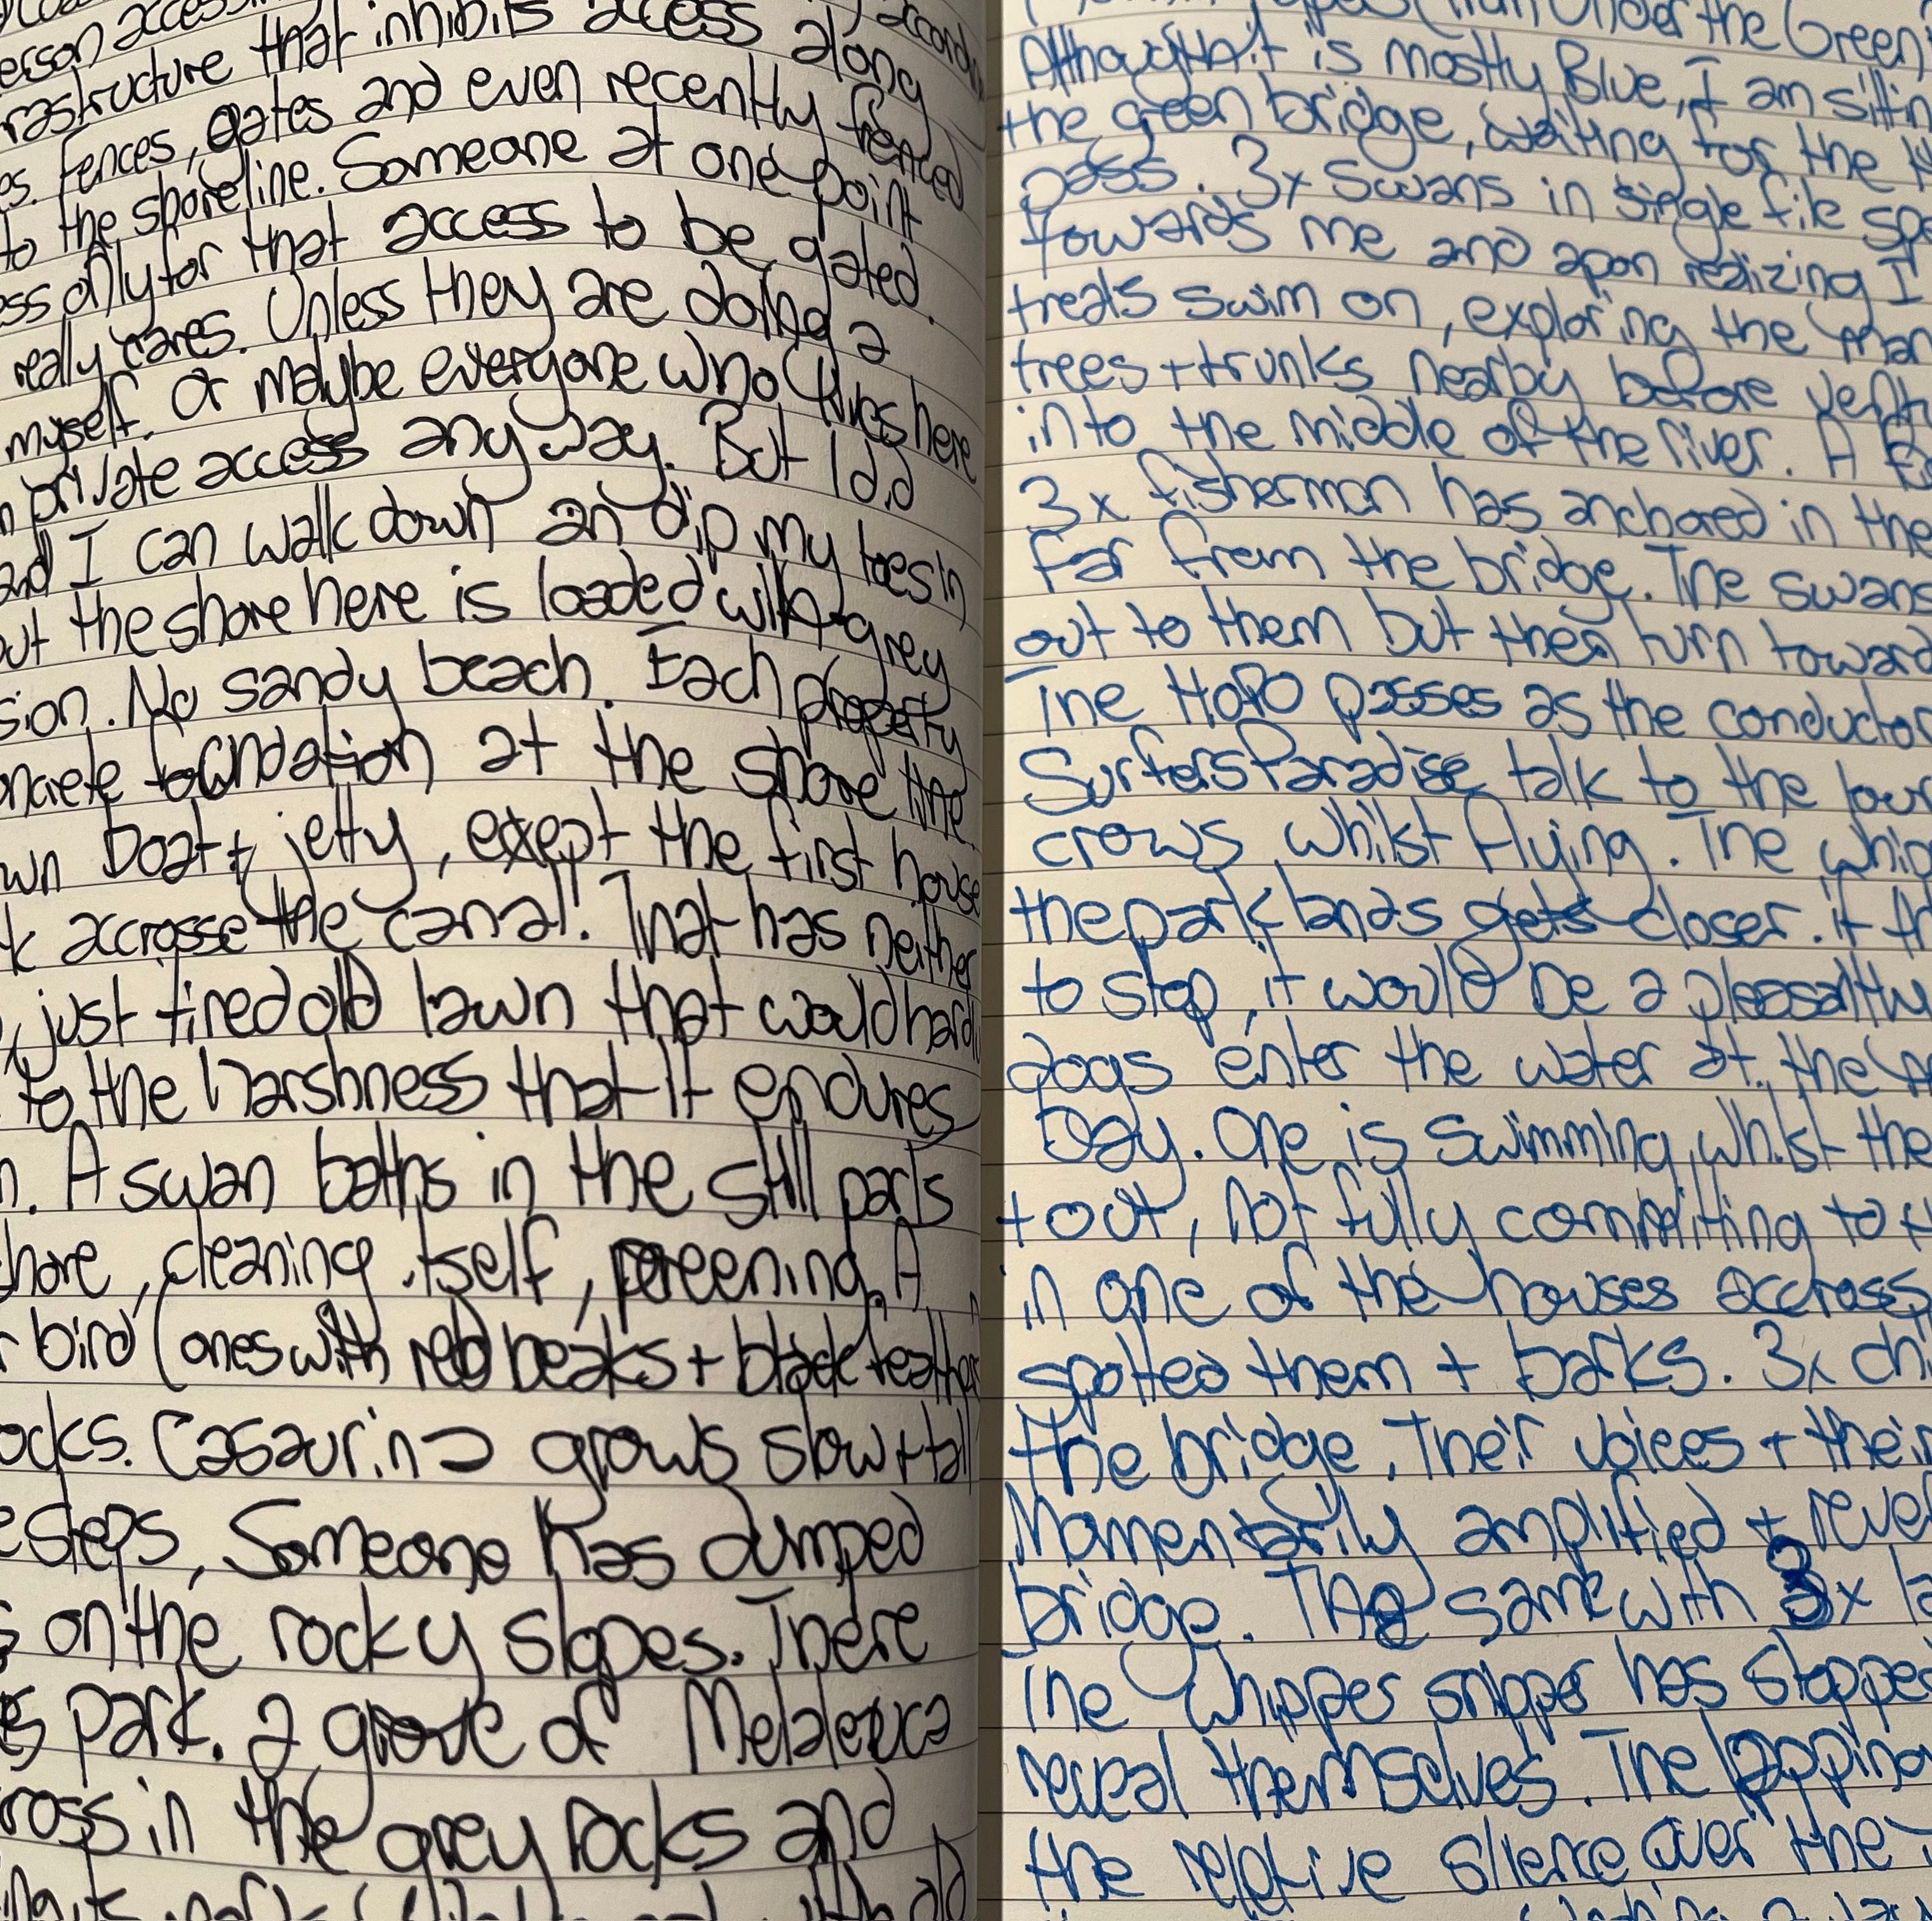 erson access
rastructure that inhibits access along
es. Fences, gates and even recently fenced
to the shoreline. Someone at one point
ess only for that access to be gated.
really cares. Unless they are doing a
myself. Or maybe everyone who lives here
n private access anyway. But I did
and I can walk down an dip my toes in
out the shore here is loaded with grey
sion. No sandy beach. Each property
oncrete foundation at the shore line
wn boat + jetty, except the first house
k accrosse the canal! That has neither
, just tired old lawn that would hardl
to the harshness that it endures
n. A swan baths in the still parts
hore, cleaning itself, preening. A
r bird (ones with red beaks + black feathers
ocks. Casaurina grows slow + tall
e steps, Someone has dumped
s on the rocky slopes. There
es park. a grove of Melaleuca
ross in the grey rocks and
under the Green
Although it is mostly Blue, I am sittin
the green bridge, waiting for the
pass. 3x swans in single file sp
towards me and apon realizing I
treats swim on, exploring the man
trees + trunks nearby before vent
into the middle of the river. A
3x fisherman has anchored in the
far from the bridge. The swans
out to them but then turn toward
The HoPO passes as the conductor
Surfers Paradise talk to the lou
crows whilst flying. The whip
the park lands gets closer. if th
to stop, it would be a pleasant
dogs enter the water at the
Day. One is swimming, whilst the
+ out, not fully committing to t
in one of the houses accross
spotted them + barks. 3x ch
the bridge. Their voices + their
Momentarily amplified + rever
bridge. The same with 3x la
The whipper snipper has stopped
reveal themselves. The lapping
the relative silence over the